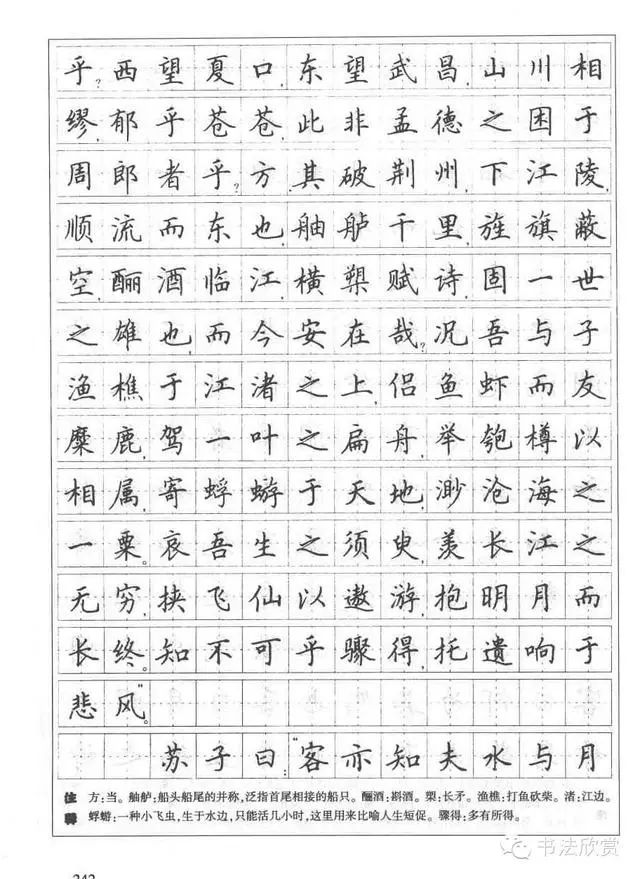 乎?西望夏口,东望武昌,山川相
缪,郁乎苍苍,此非孟德之困于
周郎者乎?方其破荆州,下江陵,
顺流而东也,舳舻千里,旌旗蔽
空,酾酒临江,横槊赋诗,固一世
之雄也,而今安在哉?况吾与子
渔樵于江渚之上,侣鱼虾而友
麋鹿,驾一叶之扁舟,举匏樽以
相属。寄蜉蝣于天地,渺沧海之
一粟。哀吾生之须臾,羡长江之
无穷,挟飞仙以遨游,抱明月而
长终。知不可乎骤得,托遗响于
悲风。”
苏子曰:“客亦知夫水与月
注 方:当。舳舻:船头船尾的并称,泛指首尾相接的船只。酾酒:斟酒。槊:长矛。渔樵:打鱼砍柴。渚:江边。
释 蜉蝣:一种小飞虫,生于水边,只能活几小时,这里用来比喻人生短促。骤得:多有所得。
书法欣赏
242